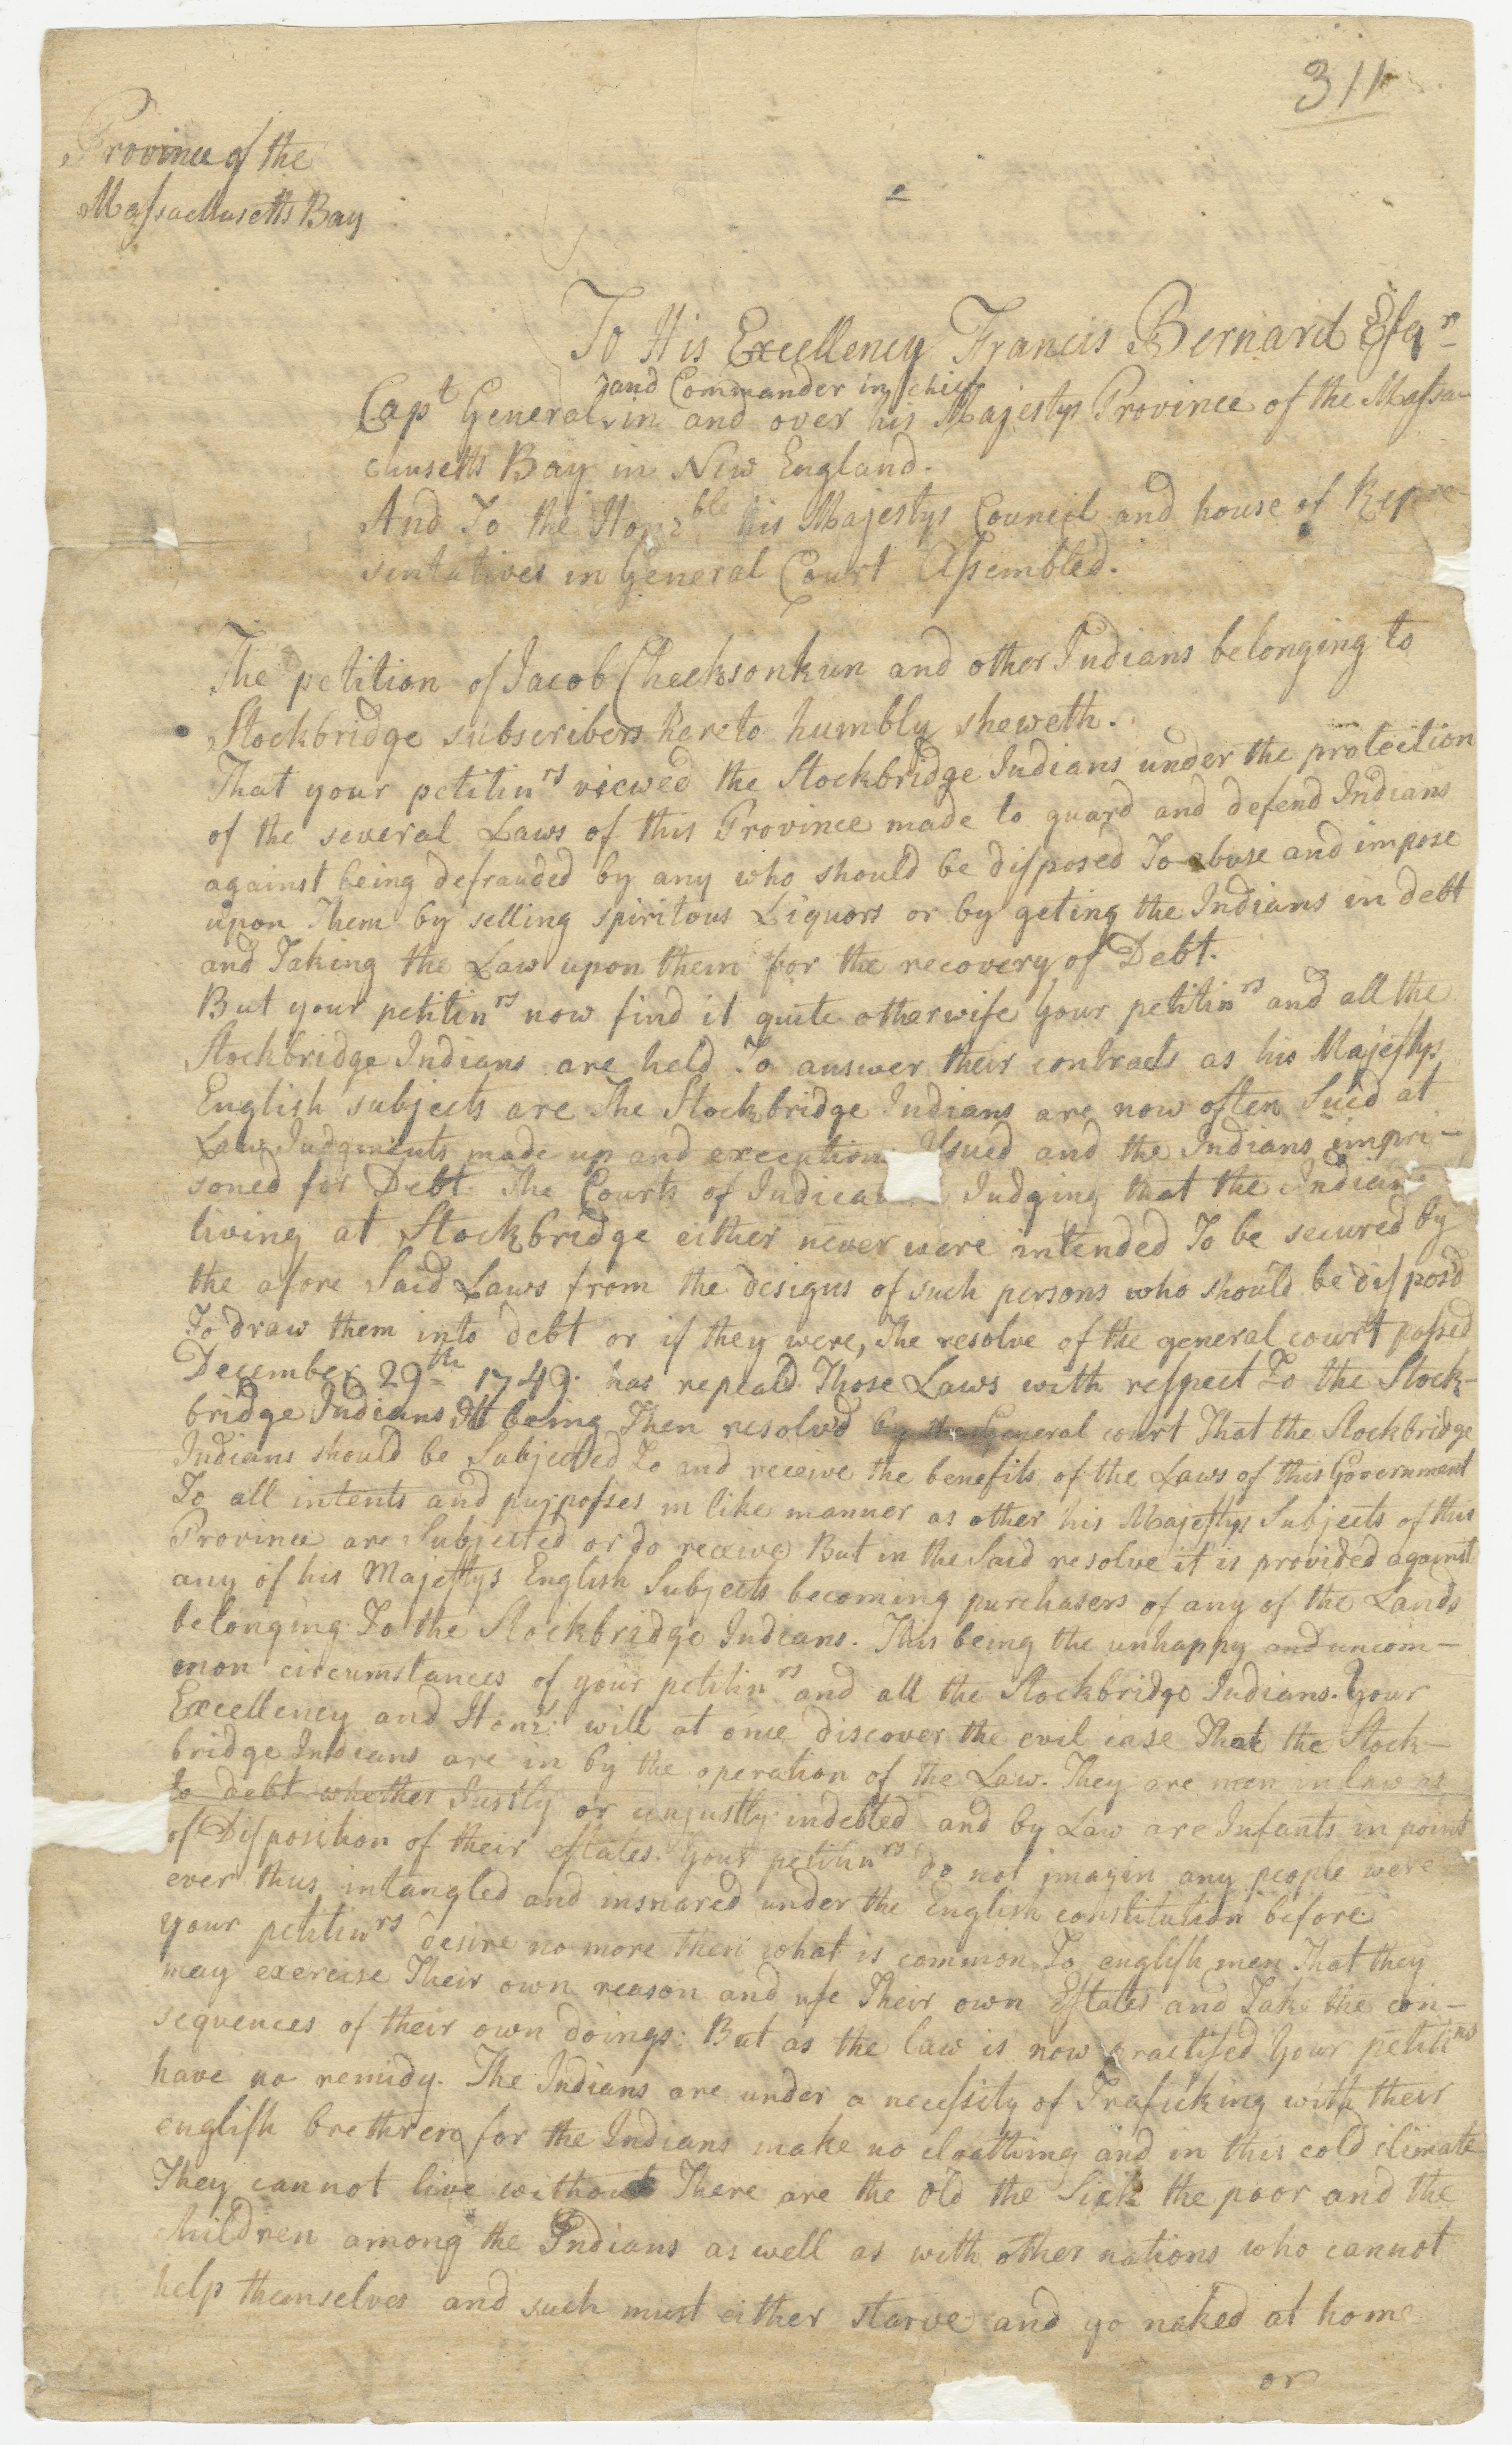 311
Province of the
Massachusetts Bay
To His Excellency Francis Bernard Esqr
and Commander in chief
Capt General in and over his Majestys Province of the Massa-
chusetts Bay in New England.
And To the Honrble his Majestys Council and house of Repre-
sentatives in General Court Assembled.
The petition of Jacob Cheeksonkun and other Indians belonging to
Stockbridge subscribers hereto humbly sheweth.
That your petitinrs viewed the Stockbridge Indians under the protection
of the several Laws of this Province made to guard and defend Indians
against being defrauded by any who should be disposed To abuse and impose
upon Them by selling spiritous Liquors or by geting the Indians in debt
and Taking the Law upon them for the recovery of Debt.
But your petitinrs now find it quite otherwise Your petitinrs and all the
Stockbridge Indians are held To answer their contracts as his Majestys
English subjects are The Stockbridge Indians are now often Sued at
Law Judgments made up and execution Issued and the Indians impri-
soned for Debt. The Courts of Judging that the Indians
living at Stockbridge either never were intended To be secured by
the afore Said Laws from the designs of such persons who should be dispos'd
To draw them into debt or if they were, The resolve of the general court passed
December 29th 1749. has repeald Those Laws with respect To the Stock-
bridge Indians It being Then resolv'd by the General court That the Stockbridge
Indians should be Subjected To and receive the benefits of the Laws of this Government
To all intents and purposses in like manner as other his Majestys Subjects of this
Province are Subjected or do receive But in the Said resolve it is provided against
any of his Majestys English Subjects becoming purchasers of any of the Lands
belonging To the Stockbridge Indians. This being the unhappy and uncom-
mon circumstances of your petitinrs and all the Stockbridge Indians. Your
Excellency and Honrs will at once discover the evil case That the Stock-
bridge Indians are in by the operation of the Law. They are men in law as
to debt whether Justly or unjustly indebted and by Law are Infants in point
of Disposition of their estates. Your petitinrs do not imagin any people were
ever thus intangled and insnared under the English constitution before.
your petitinrs desire no more then what is common To english men That they
may exercise Their own reason and use Their own Estates and Take the con-
sequences of their own doings. But as the law is now practised Your petitinrs
have no remidy. The Indians are under a necessity of Traficking with their
english brethren for the Indians make no cloathing and in this cold climate
They cannot live without There are the old the Sick the poor and the
children among the Indians as well as with other nations who cannot
help themselves and such must either starve and go naked at home
or